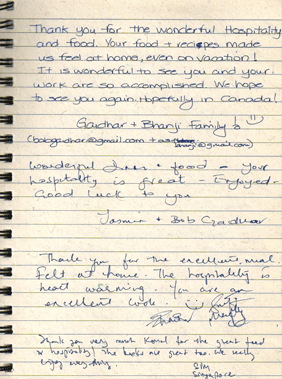 Thank you for the wonderful Hospitality
and food. Your food + recipes made
us feel at home, even on vacation!
It is wonderful to see you and your
work are so accomplished. We hope
to see you again. Hopefully in Canada!
Gaidhar + Bhanji Family
wonderful + food - your
hospitality is great - Enjoyed -
Good luck to you
Jasmin + Bob
Thank you for the excellent meal
felt at home. The hospitality is
heart warming. You are an
excellent cook.
Thank you very much for the great food
& hospitality! The books are great too. We really
enjoy everything.
Singapore